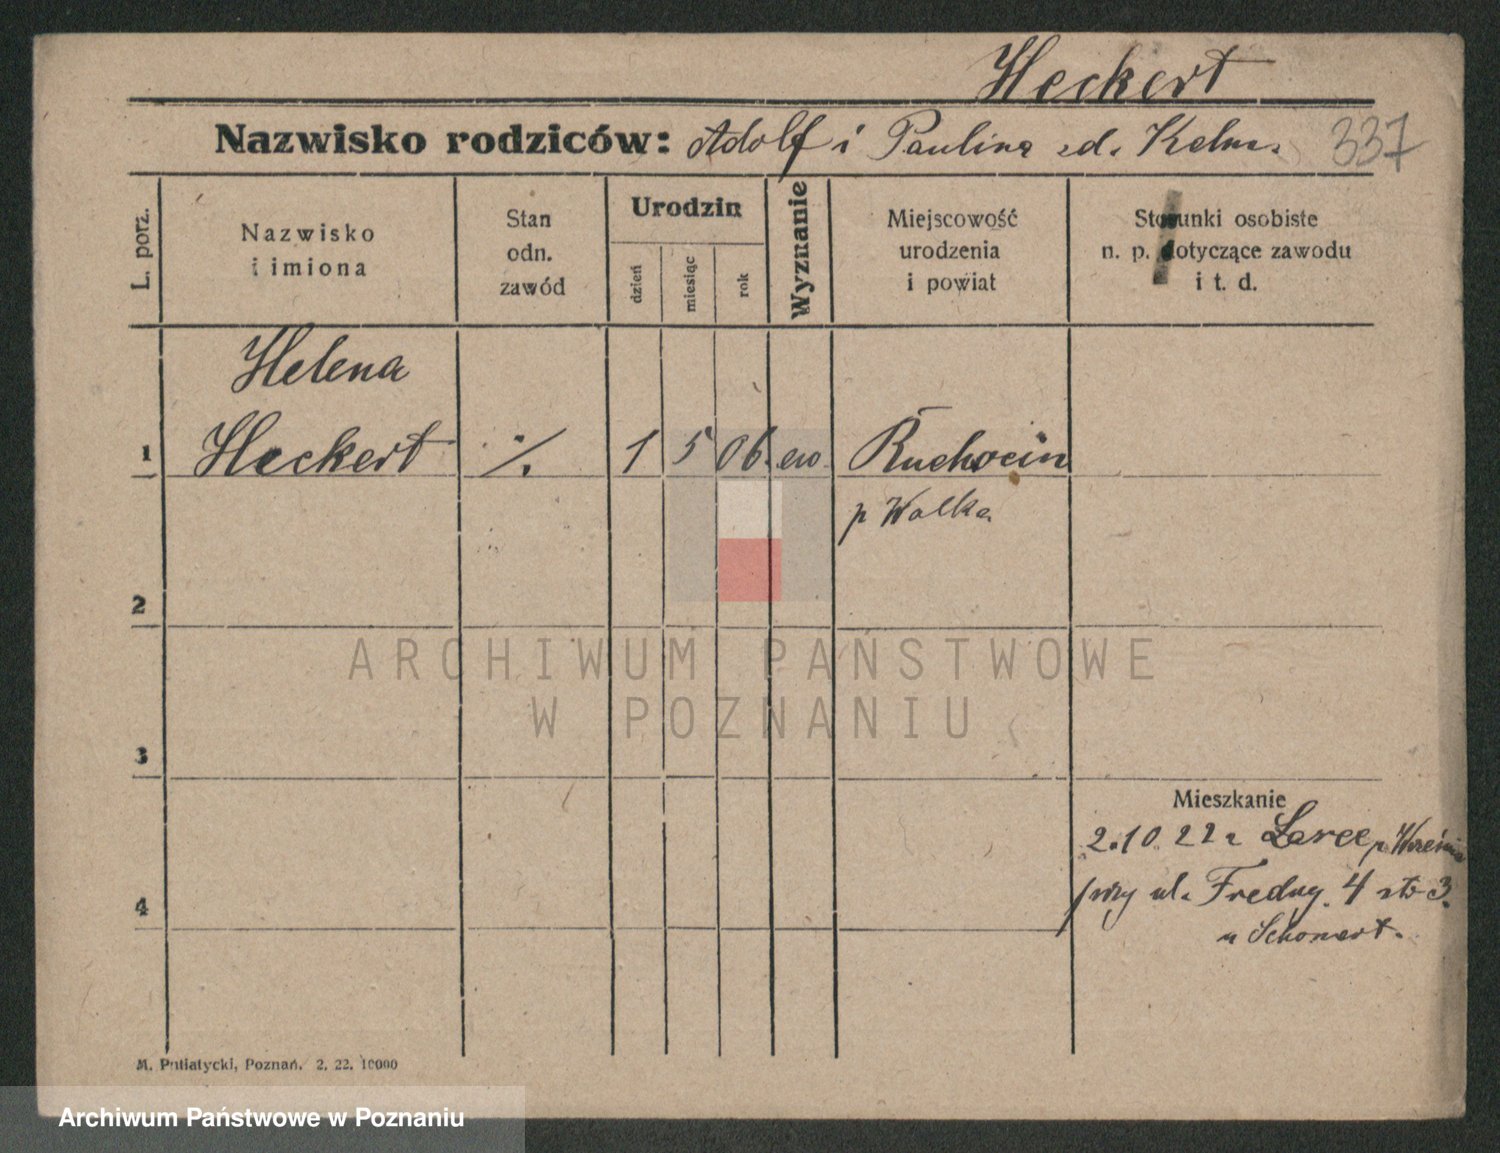 Heckert
Nazwisko rodziców: Adolf i Paulina zd. Kelm. 337
L. porz.
Nazwisko
i imiona
Stan
odn.
zawód
Urodzin
dzień
miesiąc
rok
Wyznanie
Miejscowość
urodzenia
i powiat
Stosunki osobiste
n. p. dotyczące zawodu
i t. d.
Helena
1 Heckert ./. 1 5 06. ew. Ruchocin
p Walka
2
ARCHIWUM PAŃSTWOWE
W POZNANIU
3
Mieszkanie
2.10 22 z p Września
4 ul. Fredry. 4 3.
u Schonert.
M. Putiatycki, Poznań. 2. 22. 10000
Archiwum Państwowe w Poznaniu